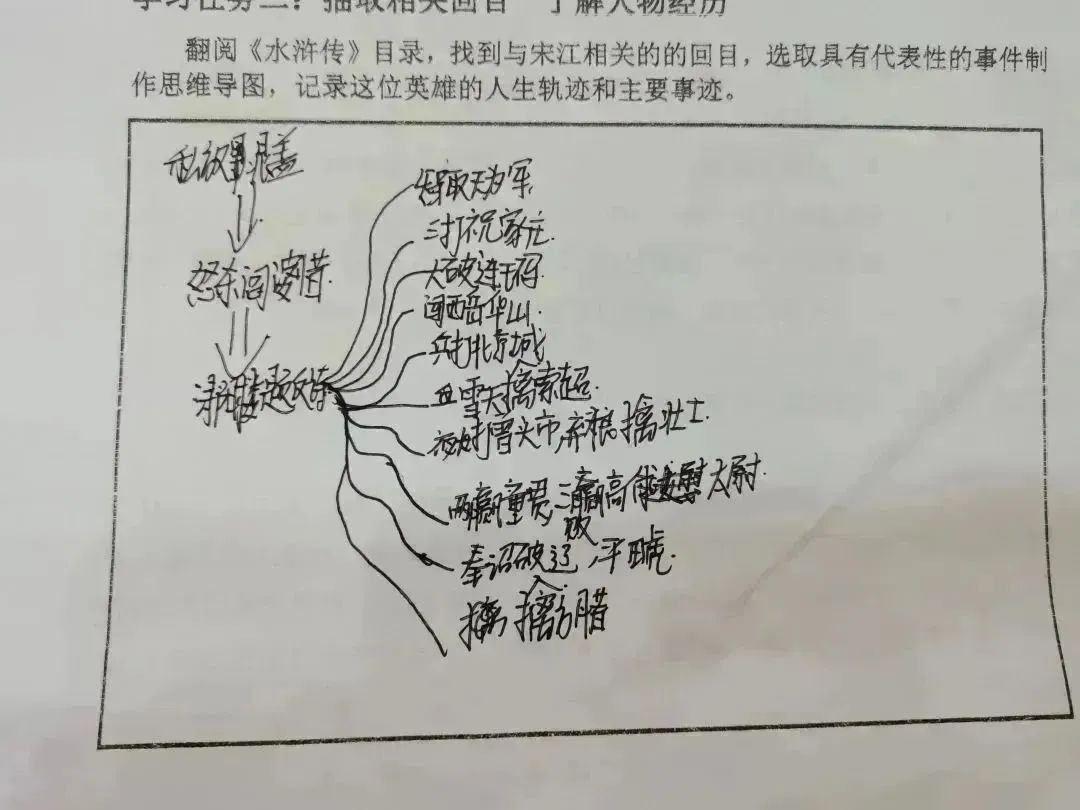 学习任务二：抽取相关回目 了解人物经历
翻阅《水浒传》目录，找到与宋江相关的的回目，选取具有代表性的事件制
作思维导图，记录这位英雄的人生轨迹和主要事迹。
私放晁盖
怒杀阎婆惜
浔阳楼题反诗
智取无为军
三打祝家庄
大破连环马
闹西岳华山
兵打北京城
雪天擒索超
夜打曾头市,
擒壮士
两赢童贯,三败高俅
太尉
奉诏破辽,平田虎
擒方腊